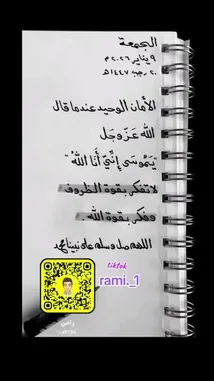 الجمعة
٩ يناير ٢٠٢٦ م
٢٠ رجب ١٤٤٧ هـ
الأمان الوحيد عندما قال
الله عَزّ وَجَل
"يَٰمُوسَىٰ إِنَّنِي أَنَا اللَّهُ"
لا تفكر بقوة الظروف
وفكر بقوة الله
اللهم صل وسلم على نبينا محمد
tiktok
rami._1